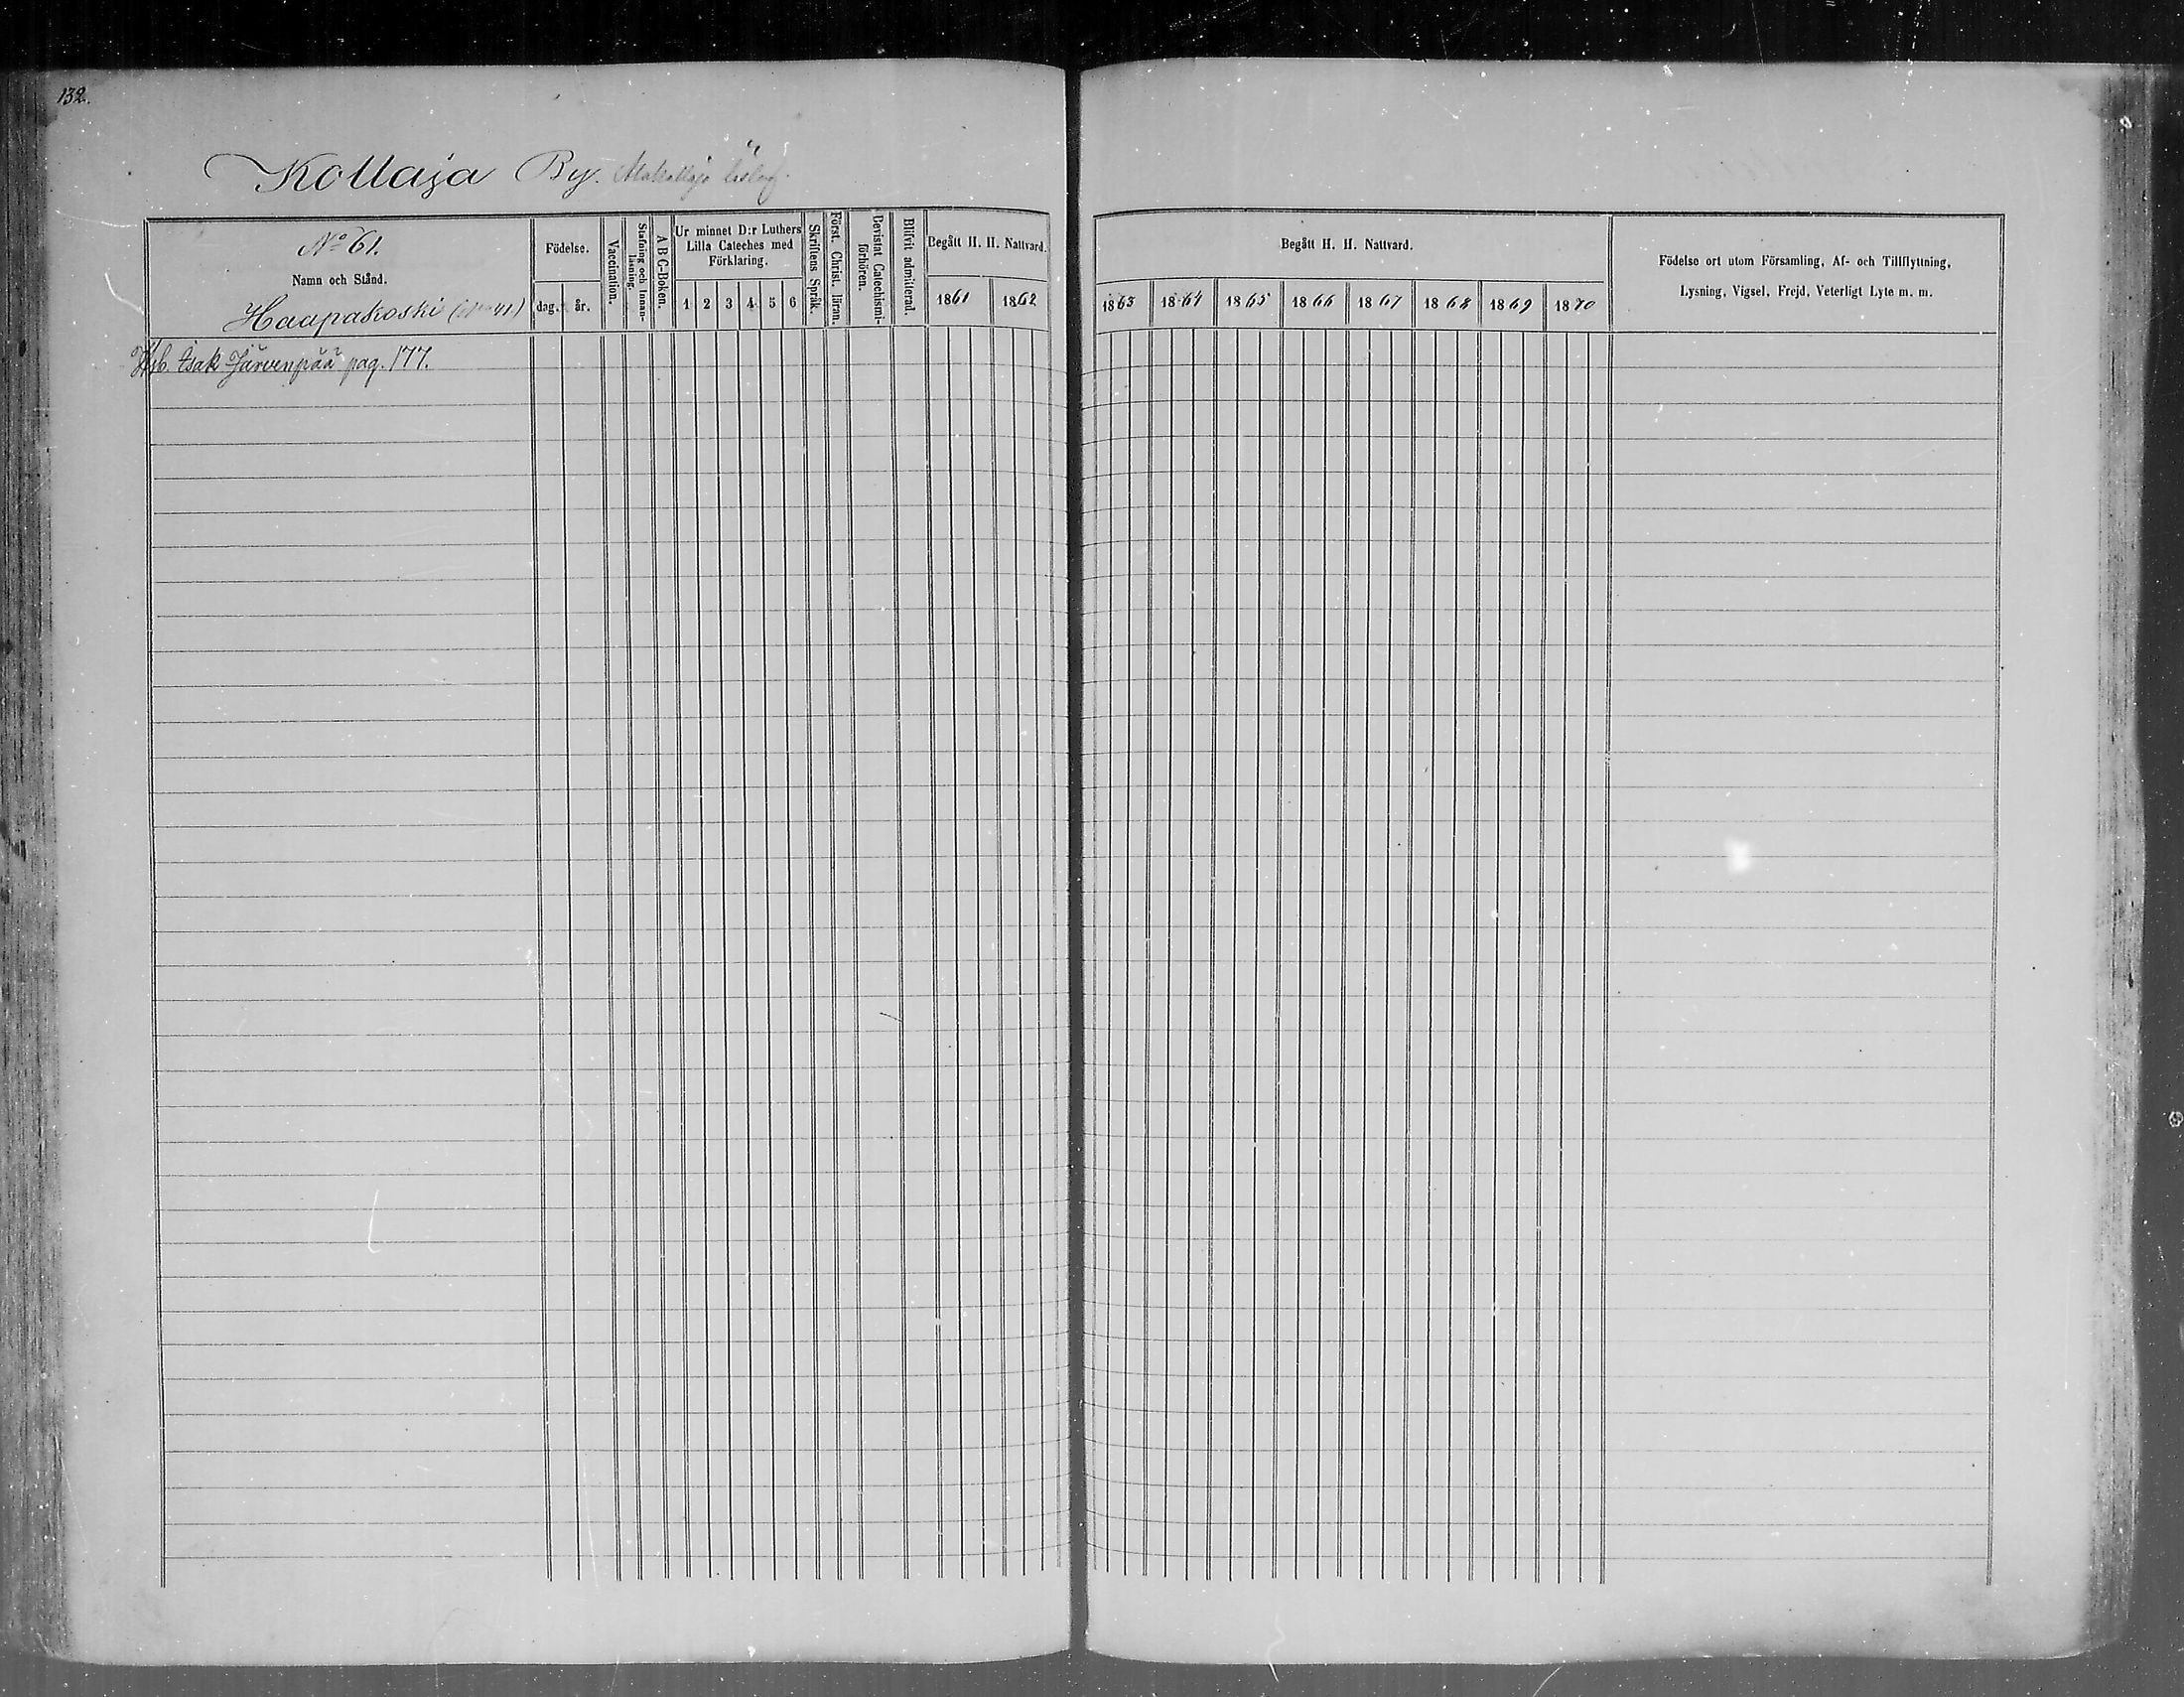 132.
Kollaja By. Alakollaja
No 61.
Namn och Stånd.
Haapakoski (No 41)
Födelse.
dag. år.
Vaccination.
Stafning och Innanläsning.
A B C-Boken.
Ur minnet D:r Luthers
Lilla Cateches med
Förklaring.
1 2 3 4 5 6
Skriftens Språk.
Först. Christ. läran.
Bevistat Catechismi-
förhören.
Blifvit admitterad.
Begått H. H. Nattvard.
1861 1862
Begått H. H. Nattvard.
1863 1864 1865 1866 1867 1868 1869 1870
Födelse ort utom Församling, Af- och Tillflyttning,
Lysning, Vigsel, Frejd, Veterligt Lyte m. m.
Isak Järvenpää pag. 177.